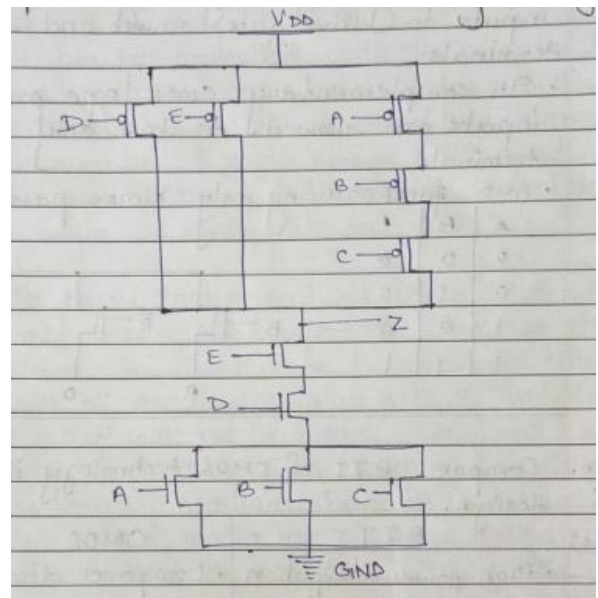 VDD
D E A
B
C
Z
E
D
A B C
GND